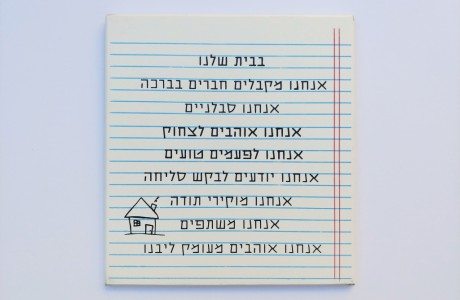 בבית שלנו
אנחנו מקבלים חברים בברכה
אנחנו סבלניים
אנחנו אוהבים לצחוק
אנחנו לפעמים טועים
אנחנו יודעים לבקש סליחה
אנחנו מוקירי תודה
אנחנו משתפים
אנחנו אוהבים מעומק ליבנו